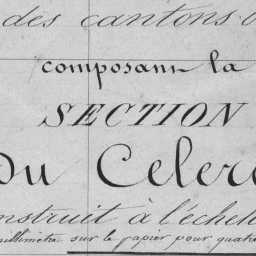 des cantons
composant la
SECTION
Du Celer
nstruit à l'échel
millimètre sur le papier pour quatr